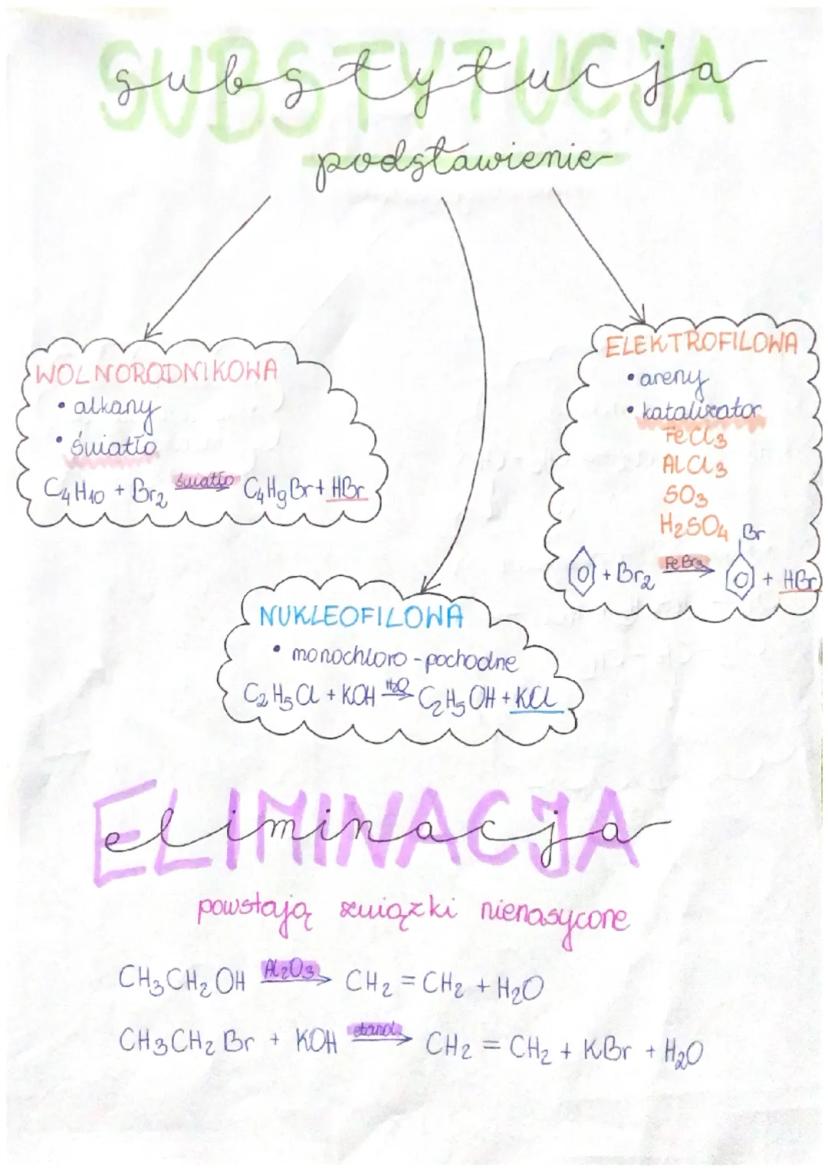 SUBSTYTUCJA
substytucja
podstawienie
WOLNORODNIKOWA
• alkany
• światło
C₄H₁₀ + Br₂ światło→ C₄H₉Br + HBr
ELEKTROFILOWA
• areny
• katalizator
FeCl₃
AlCl₃
SO₃
H₂SO₄
Br
+ Br₂ FeBr₃→ + HBr
NUKLEOFILOWA
• monochloro-pochodne
C₂H₅Cl + KOH H₂O→ C₂H₅OH + KCl
ELIMINACJA
eliminacja
powstają związki nienasycone
CH₃CH₂OH Al₂O₃→ CH₂=CH₂ + H₂O
CH₃CH₂Br + KOH etanol→ CH₂=CH₂ + KBr + H₂O